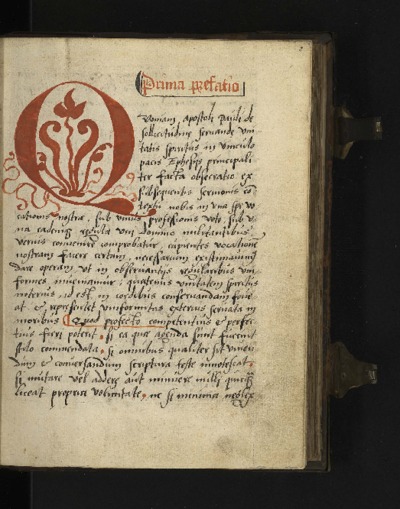 Prima prefatio
Quoniam apostoli Pauli de
sollicitudine servande uni
tatis spiritus in vinculo
pacis Ephesiis principali
ter facta obsecratio ex
subsequentis sermonis co
textu nobis in una spe vo
cationis nostre, sub unius professionis voto, sub v
na cademq regula uni domino militantibus
venisse comprobatur, cupientes vocatione
nostram facere certam, necessarium existimamus
dare operam ut in observantiis regularibus uni
formes inveniamur: quatenus unitatem spiritus
internus, id est, in cordibus conservandam fove
at & representet uniformitas exterius servata in
moribus Quod profecto competentius & perfec
tius fieri poterit, si ea que agenda sunt fuerint
scripto commendata, si omnibus qualiter sit viven
dum & conversandum scriptura teste innotescat,
si mutare vel addere aut minuere nulli quicq
liceat propria voluntate, ne si minima neglex